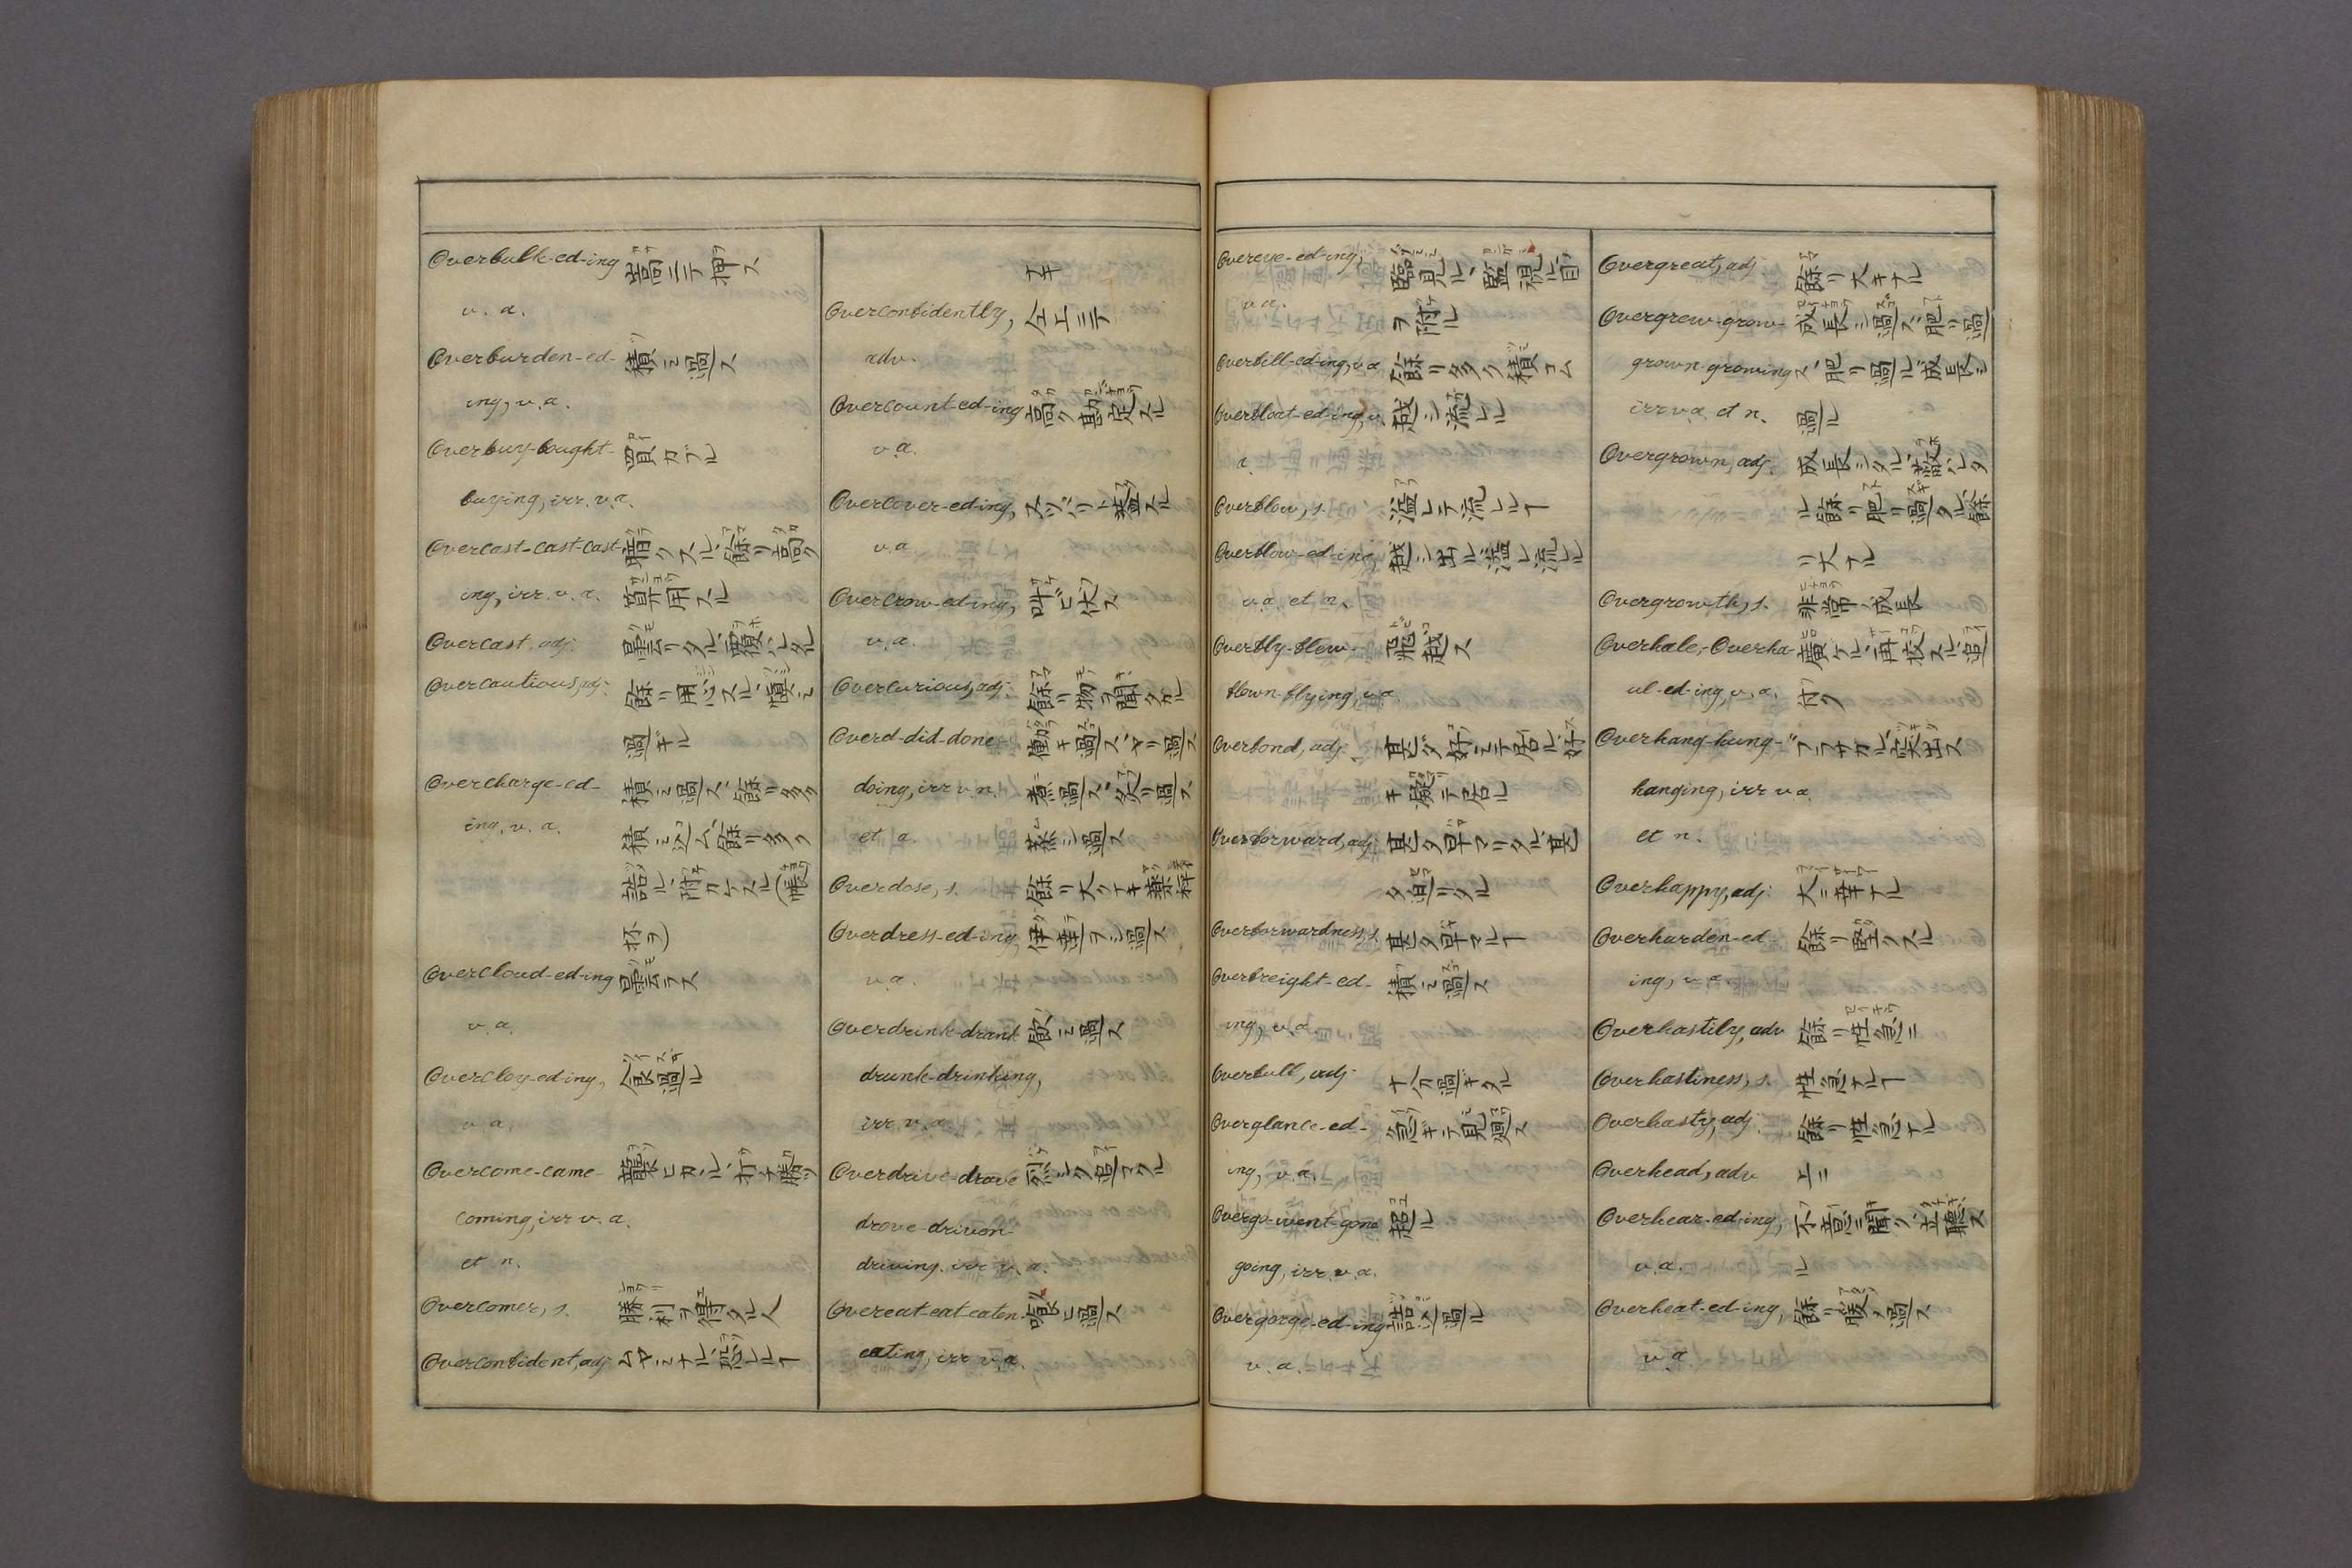 Overbulk-ed-ing 嵩ニテ押ス
v. a.
Overburden-ed- 積ミ過ス
ing, v. a.
Overbuy-bought- 買カブル
buying, irr. v. a.
Overcast-cast-cast- 暗クスル、餘リ高ク
ing, irr. v. a. 算用スル
Overcast, adj. 曇リタル、覆ハレタル
Overcautious, adj. 餘リ用心スル、慎ミ
過ギル
Overcharge-ed- 積ミ過ス、餘リ多ク
ing, v. a. 積ミ込ム、餘リ多ク
詰ル、附カケスル(帳
杯ヲ)
Overcloud-ed-ing 曇ラス
v. a.
Overcloy-ed-ing, 食過ル
v. a.
Overcome-came- 襲ヒカル、打チ勝ツ
coming, irr v. a.
et n.
Overcomer, s. 勝利ヲ得タル人
Overconfident, adj ムヤミナル、恐レル

Overconfidently, 仝上ニテ
adv.
Overcount-ed-ing 高ク勘定スル
v. a.
Overcover-ed-ing, スッパリト蓋スル
v. a
Overcrow-ed-ing, 叫ビ伏ス
v. a.
Overcurious, adj. 餘リ物ヲ聞タガル
Overd-did-done- 働キ過ス、ヤリ過ス
doing, irr v. n. 煮過ス、炙リ過ス
et a. 蒸シ過ス
Overdose, s. 餘リ大クナキ藥秤
Overdress-ed-ing, 伊達ヲシ過ス
v. a.
Overdrink-drank 飲ミ過ス
drunk-drinking,
irr. v. a.
Overdrive-drave 烈シク追マクル
drove-driven-
driving. irr. v. a.
Overeat-eat-eaten- 喰ヒ過ス
eating, irr v. a.

Overeye-ed-ing, 臨見ル、監視ル、目
v. a. ヲ附ル
Overfill-ed-ing, v. a 餘リ多ク積コム
Overfloat-ed-ing, v. 越シ流レル
a.
Overflow, s. 溢レテ流レル
Overflow-ed-ing, 越シ出ル、溢レ流レル
v. a. et n.
Overfly-flew- 飛越ス
flown-flying, v. a.
Overfond, adj. 甚ダ好ミテ居ル、好
キ凝テ居ル
Overforward, adj. 甚タ早マリタル、甚
タ迫リタル
Overforwardness, s. 甚タ早マル
Overfreight-ed- 積ミ過ス
ing, v. a.
Overfull, adj. 十分過キタル
Overglance-ed- 急ギテ見過ス
ing, v. a.
Overgo-went-gone 超ル
going, irr. v. a.
Overgorge-ed-ing 詰込過ル
v. a.

Overgreat, adj 餘リ大キナル
Overgrew-grow- 成長シ過ス、肥リ過
grown-growing ス、肥リ過ル、成長シ
irr v. a. et n. 過ル
Overgrown, adj. 成長シタル、蔽ハレタ
ル、餘リ肥リ過タル、餘
リ大ナル
Overgrowth, s. 非常ノ成長
Overhale,-Overha- 廣ケル、再校スル、追
ul-ed-ing, v. a. 付ク
Overhang-hung- ブラサガル、突出ス
hanging, irr v. a.
et n.
Overhappy, adj. 大ニ幸ナル
Overharden-ed- 餘リ堅クスル
ing, v. a.
Overhastily, adv 餘リ性急ニ
Overhastiness, s. 性急ナル
Overhasty, adj. 餘リ性急ナル
Overhead, adv 上ニ
Overhear-ed-ing, 不意ニ聞ク、立聽ス
v. a. ル
Overheat-ed-ing, 餘リ暖メ過ス
v. a.